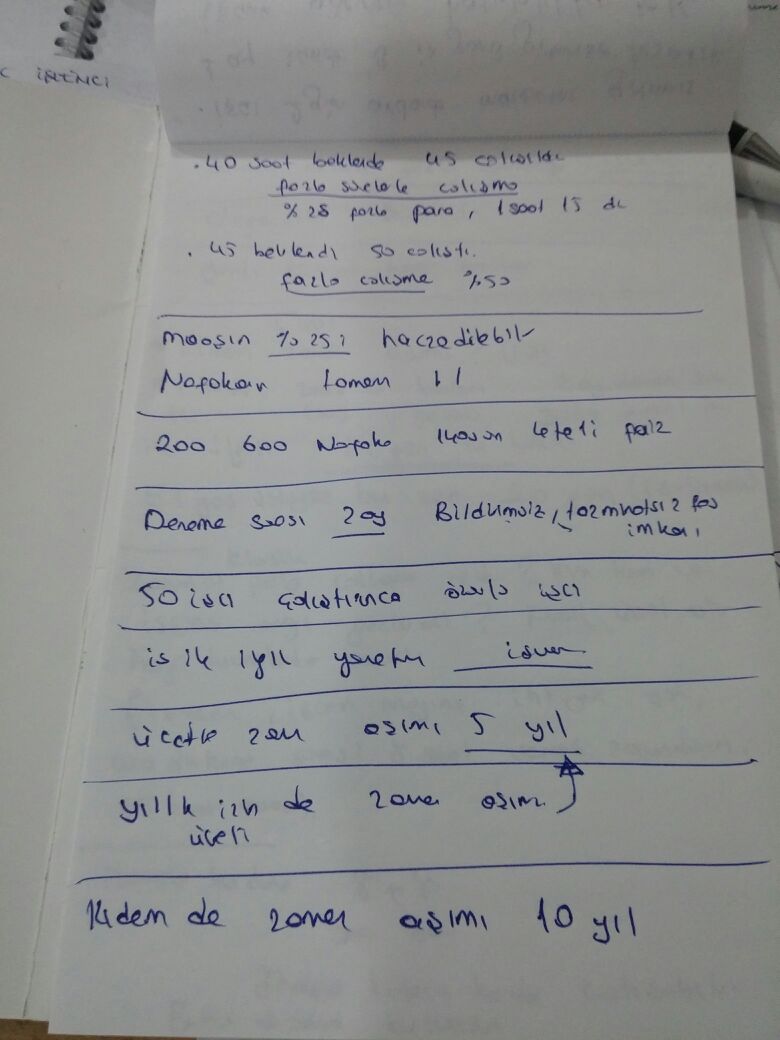 İKİNCİ
. 40 saat beklende 45 calısıldı
fazla surele calısma
% 25 fazla para, 1 saat 15 dk
. 45 beklendi 50 calıstı.
fazla calısma %50
maaşın % 25 i haczedilebilir
Nafakan tamam
200 600 Nafaka
Deneme süresi 2 ay Bildirimsiz, tazminatsız fes
imkanı
50 işci çalıstırınca işci
is ik 1 yıl işveren
ücette zam aşımı 5 yıl
yıllık izin de zaman aşımı
ücreti
Kıdem de zaman aşımı 10 yıl